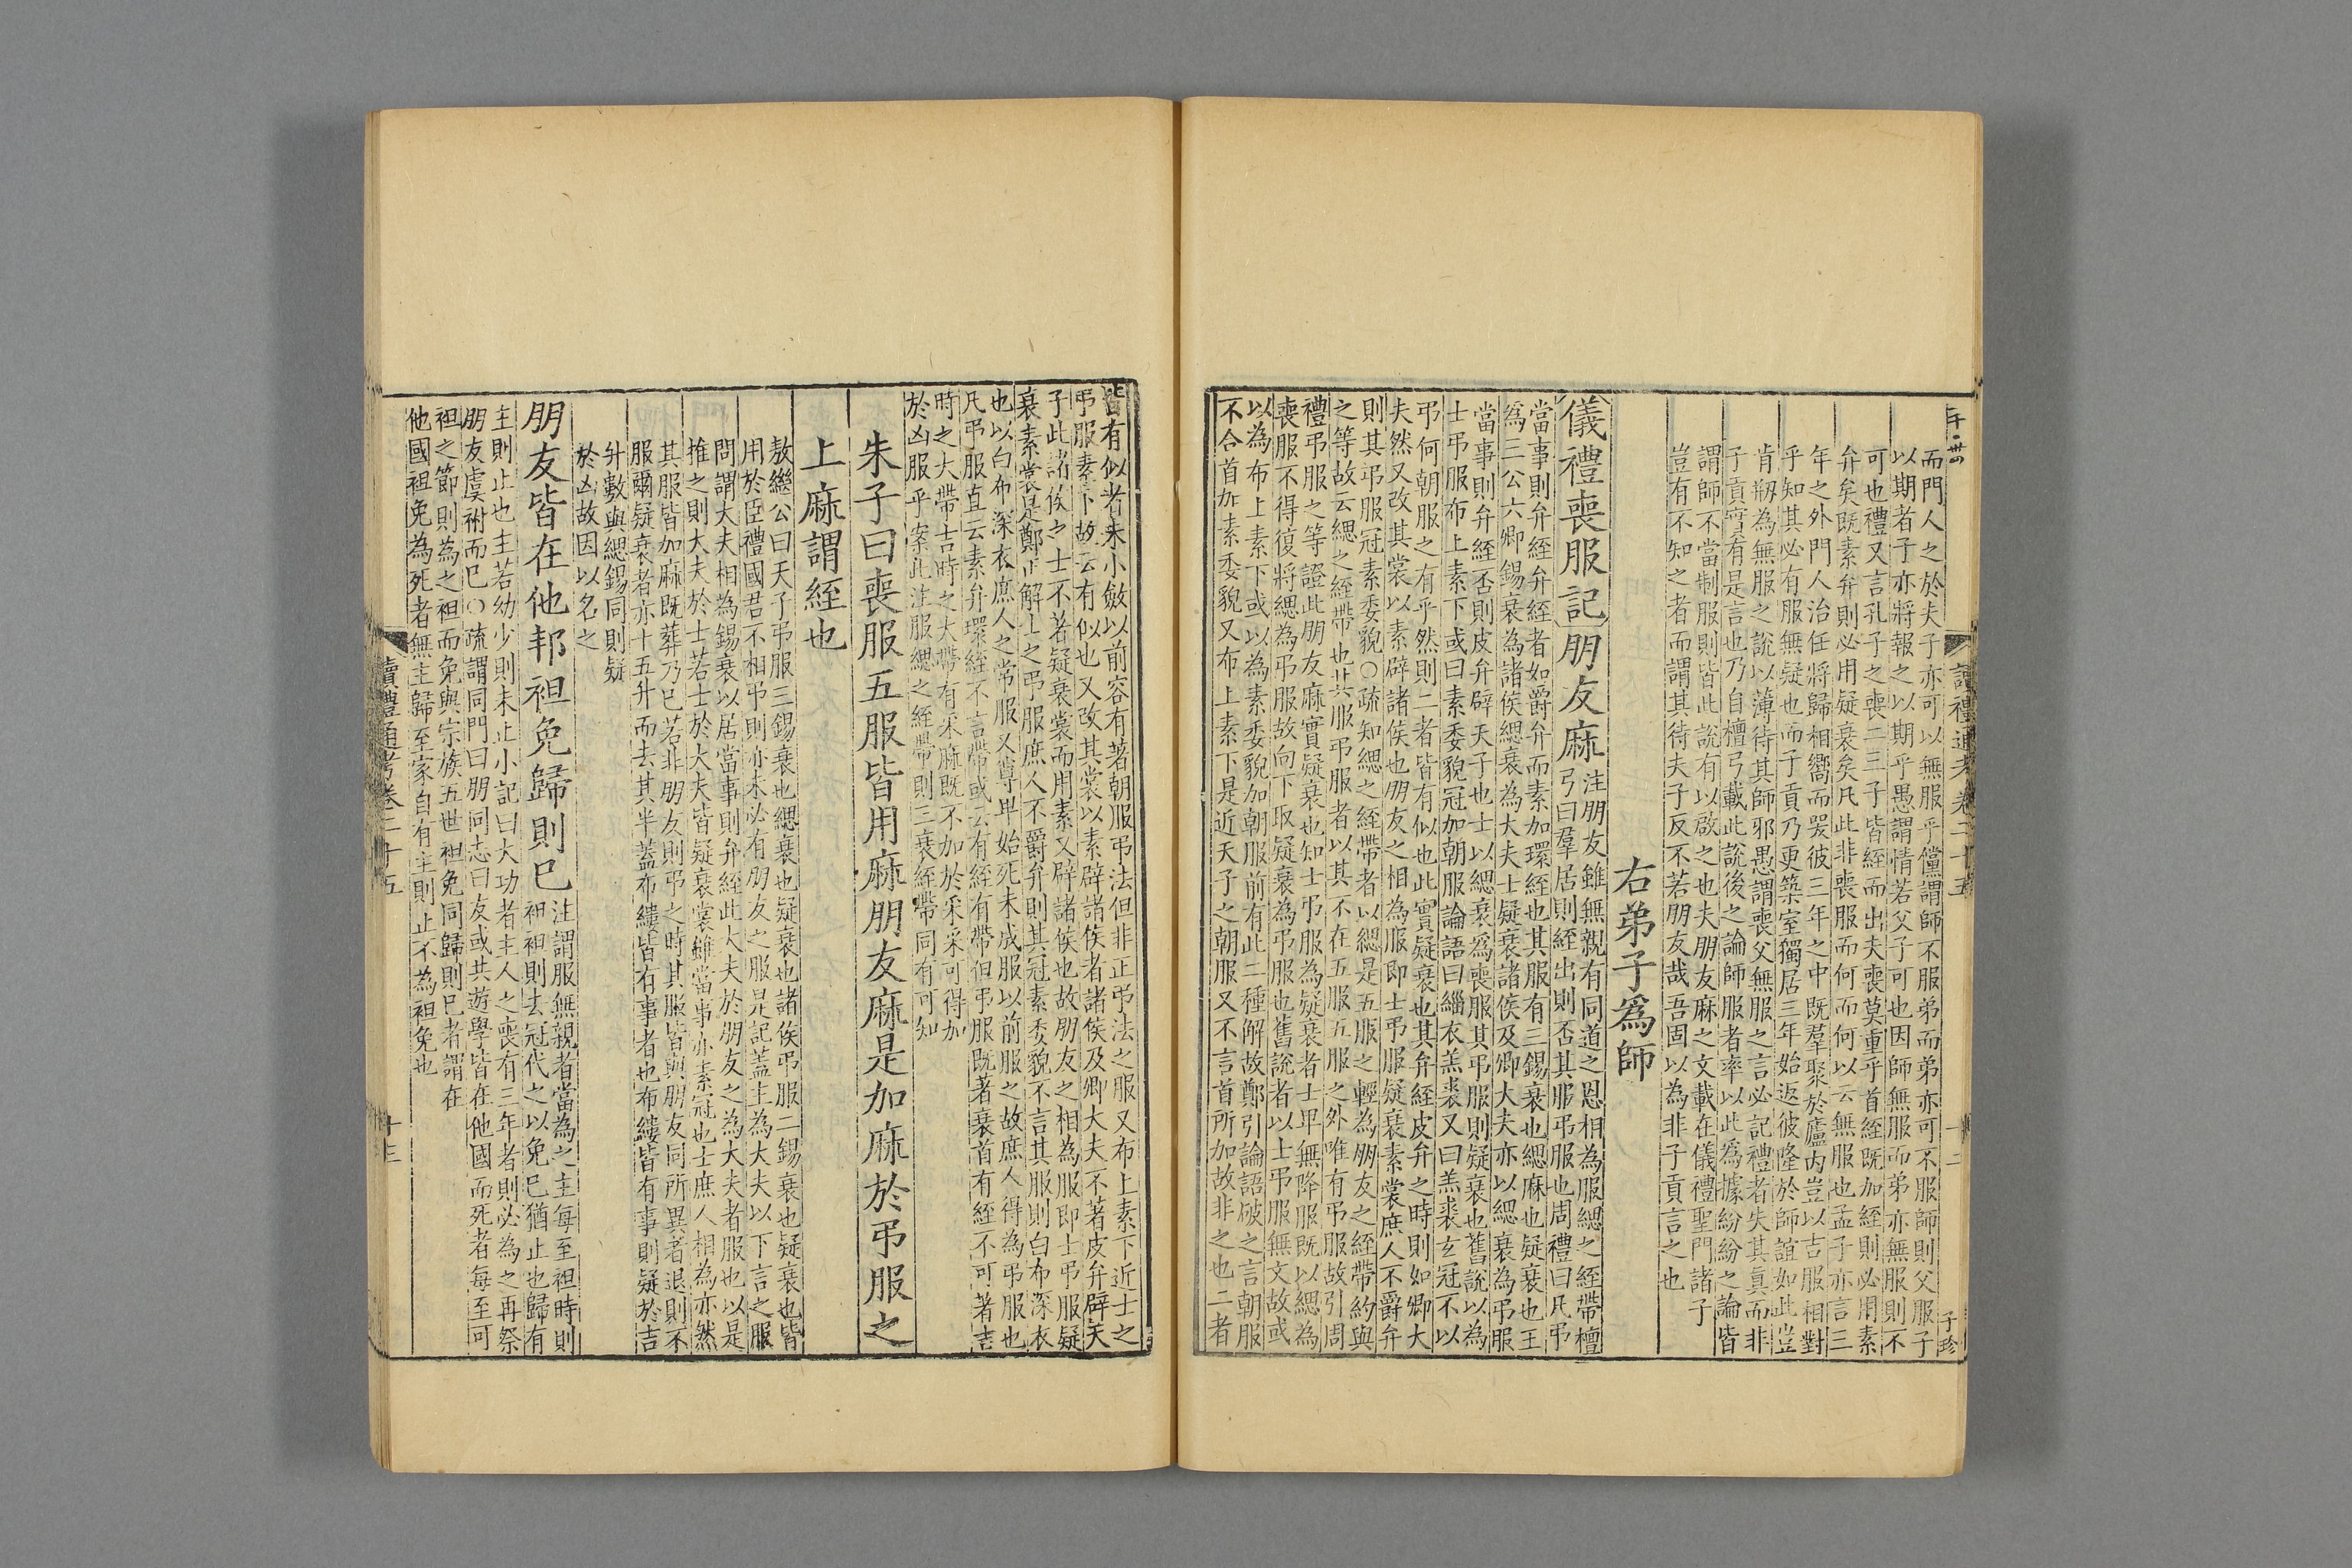 而門人之於夫子亦可以無服乎儻謂師不服弟而弟亦可不服師則父服子
以期者子亦將報之以期乎愚謂情若父子可也因師無服而弟亦無服則不
可也禮又言孔子之喪二三子皆絰而出夫喪莫重乎首絰既加絰則必用素
弁矣既素弁則必用疑衰矣凡此非喪服而何而何以云無服也孟子亦言三
年之外門人治任將歸相嚮而哭彼三年之中既羣聚於廬内豈以吉服相對
乎知其必有服無疑也而子貢乃更築室獨居三年始返彼隆於師誼如此豈
肯剏為無服之說以薄待其師邪愚謂喪父無服之言必記禮者失其真而非
子貢實有是言也乃自檀弓載此說後之論師服者率以此爲據紛紛之論皆
謂師不當制服則皆此說有以啟之也夫朋友麻之文載在儀禮聖門諸子
豈有不知之者而謂其待夫子反不若朋友哉吾固以為非子貢言之也
右弟子爲師
儀禮喪服記朋友麻
注朋友雖無親有同道之恩相為服緦之絰帶檀
弓曰羣居則絰出則否其服弔服也周禮曰凡弔
當事則弁絰弁絰者如爵弁而素加環絰也其服有三錫衰也緦麻也疑衰也王
爲三公六卿錫衰為諸侯緦衰為大夫士疑衰諸侯及卿大夫亦以緦衰為弔服
當事則弁絰否則皮弁辟天子也士以緦衰爲喪服其弔服則疑衰也舊說以為
士弔服布上素下或曰素委貌冠加朝服論語曰緇衣羔裘又曰羔裘玄冠不以
弔何朝服之有乎然則二者皆有似也此實疑衰也其弁絰皮弁之時則如卿大
夫然又改其裳以素辟諸侯也朋友之相為服即士弔服疑衰素裳庶人不爵弁
則其弔服冠素委貌○疏知緦之絰帶者以緦是五服之輕為朋友之絰帶約與
之等故云緦之絰帶也云服弔服者以其不在五服五服之外唯有弔服故引周
禮弔服之等證此朋友麻實疑衰也知士弔服為疑衰者士卑無降服既以緦為
喪服不得復將緦為弔服故向下取疑衰為弔服也舊說者以士弔服無文故或
以為布上素下或以為素委貌加朝服前有此二種解故鄭引論語破之言朝服
不合首加素委貌又布上素下是近天子之朝服又不言首所加故非之也二者
皆有似者未小斂以前容有著朝服弔法但非正弔法之服又布上素下近士之
弔服素下故云有似也又改其裳以素辟諸侯者諸侯及卿大夫不著皮弁辟天
子此諸侯之士不著疑衰裳而用素又辟諸侯也故朋友之相為服即士弔服疑
衰素裳是鄭正解士之弔服庶人不爵弁則其冠素委貌不言其服則白布深衣
也以白布深衣庶人之常服又尊卑始死未成服以前服之故庶人得為弔服也
凡弔服直云素弁環絰不言帶或云有絰有帶但弔服既著衰首有絰不可著吉
時之大帶吉時之大帶有采麻既不加於采采可得加
於凶服乎案此注服緦之絰帶則三衰絰帶同有可知
朱子曰喪服五服皆用麻朋友麻是加麻於弔服之
上麻謂絰也
敖繼公曰天子弔服三錫衰也緦衰也疑衰也諸侯弔服二錫衰也疑衰也皆
用於臣禮國君不相弔則亦未必有朋友之服是記蓋主為大夫以下言之服
問謂大夫相為錫衰以居當事則弁絰此大夫於朋友之為大夫者服也以是
推之則大夫於士若士於大夫皆疑衰裳雖當事亦素冠也士庶人相為亦然
其服皆加麻既葬乃已若非朋友則弔之時其服皆與朋友同所異者退則不
服爾疑衰者亦十五升而去其半蓋布縷皆有事者也布縷皆有事則疑於吉
升數與緦錫同則疑
於凶故因以名之
朋友皆在他邦袒免歸則已
注謂服無親者當為之主每至袒時則
袒袒則去冠代之以免已猶止也歸有
主則止也主若幼少則未止小記曰大功者主人之喪有三年者則必為之再祭
朋友虞祔而已○疏謂同門曰朋同志曰友或共遊學皆在他國而死者每至可
袒之節則為之袒而免與宗族五世袒免同歸則已者謂在
他國袒免為死者無主歸至家自有主則止不為袒免也
讀禮通考卷二十五
十三